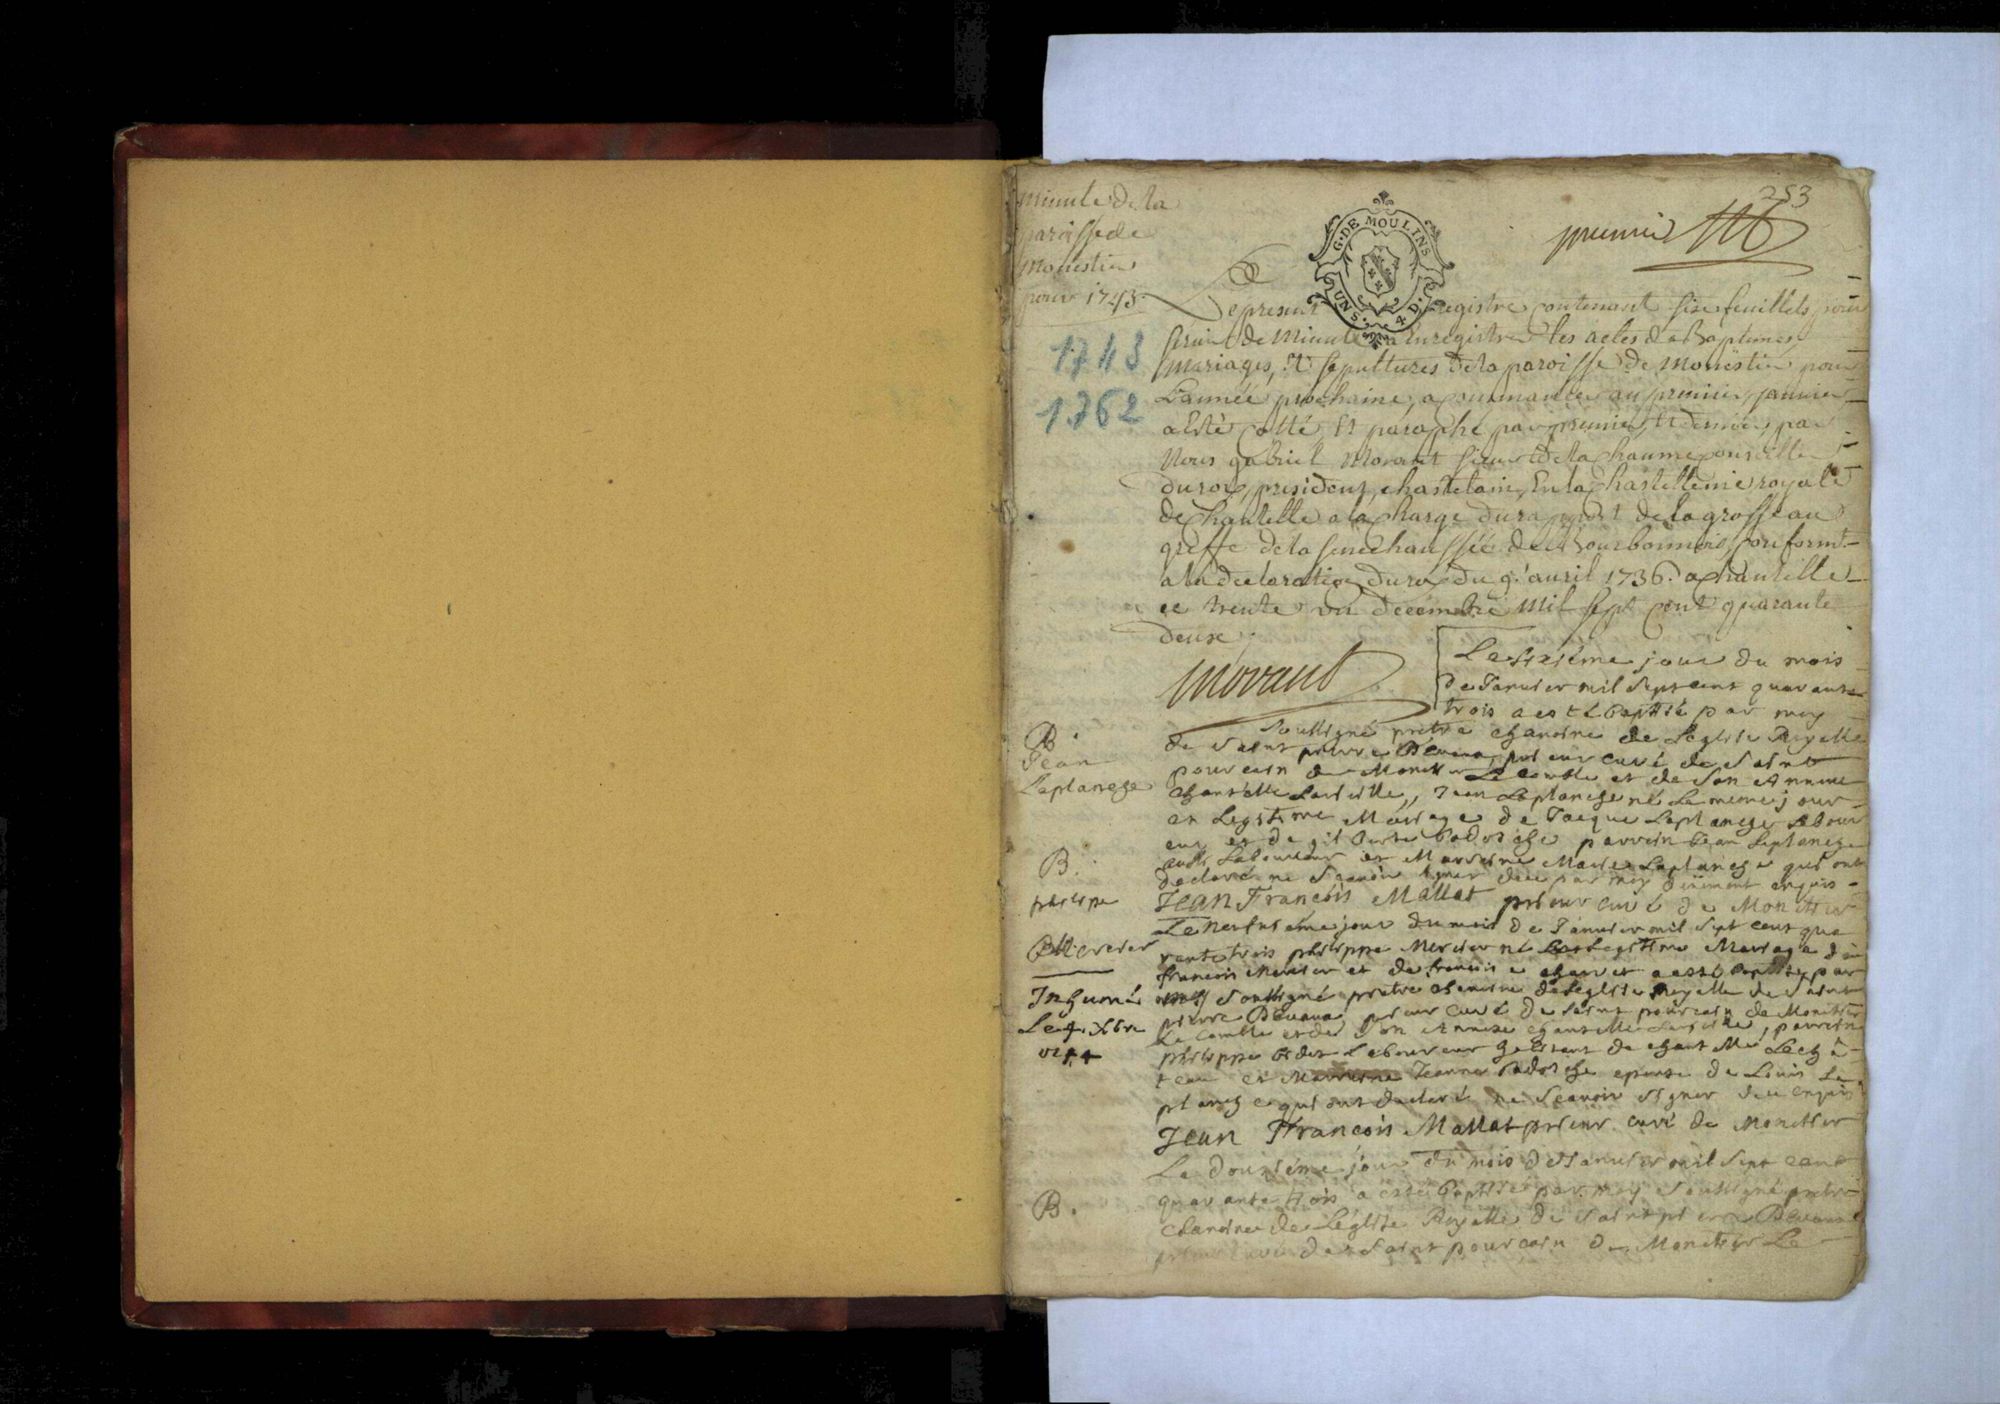 253
premier
minute de la
paroisse de
Monestier
pour 1743
G. DE MOULINS
UN S. 4 D.
1743
1762
Le present registre contenant six feuillets pour
servir de minute a Enregistrer les actes de Baptemes
mariages, et sepultures de la paroisse de Monestier pour
L'année prochaine, a commancer au premier janvier
a Eté cotté Et paraphé par premier, et dernier, par
Nous gabriel Morant sieur de la Chaume conseiller
du roy, president, chastelain, En la Chastellenie royale
de Chantelle a la charge du raport de la grosse au
greffe de la senechaussée de Bourbonnois, conformt.
a la declaration du roy du 9.e auril 1736. a Chantelle
ce trente un decembre mil sept cent quarante
deux
Morant
Le sixième jour du mois
de Januier mil sept cent quarante
trois a esté baptisé par moy
soussigné pretre chanoine de L'église Royalle
B.
Jean
Laplanche
de saint pierre prieur curé de saint
pourcain de Monestier Le comble et de son Annexe
chantelle La vieille,, Jean Laplanche né Le meme jour
en Legitime Mariage de Jacque Laplanche Labour
eur et de gilberte parrein Jean Laplanche
aussi Laboureur et Marreine Marie Laplanche qui ont
declaré ne scauoir signer de ce par moy duëment enquis
Jean François Mallat prieur curé de Monestier
B.
phelippe
Mercier
Le neufuième jour du mois de Januier mil sept cent qua
rante trois phelippe Mercier né Legitime Mariage de
françois Mercier et de françoise a esté baptisé par
moy soussigné pretre chanoine de L'eglise royalle de saint
pierre prieur curé de saint pourcain de Monestier
Le comble et de son Annexe chantelle La vieille, parrein
phelippe Laboureur de chantelle Le chà
teau et Marreine Jeanne epouse de Louis La
planche qui ont declaré ne scauoir signer de ce enquis
Jean François Mallat prieur curé de Monestier
Inhumé
Le 4. xbre
Le douzième jour du mois de Januier mil sept cent
quarante trois a esté baptisé par moy soussigné pretre
B.
chanoine de L'église Royalle de saint pierre
prieur curé de saint pourcain de Monestier Le